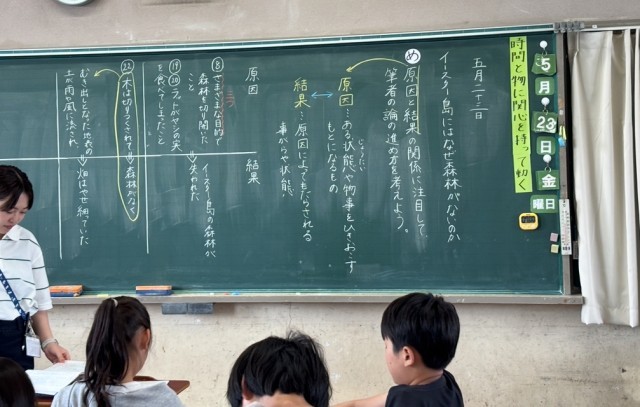 5
月
23
日
金
曜日
時間と物に関心を持って動く
五月二十三日
イースター島にはなぜ森林がないのか
め 原因と結果の関係に注目して、
筆者の論の進め方を考えよう。
原因…ある状態や物事をひきおこす
じょうたい
もとになるもの
結果…原因によってもたらされる
事がらや状態。
原因
結果
⑧さまざまな目的で
森林を切り開いた
こと
イースター島の森林が
失われた
⑲
⑳ラットがヤシの実
を食べてしまったこと
㉒木は切りつくされて
森林がなく
むき出しになった地表の
土が雨や風に流され、
畑はやせ細っていた